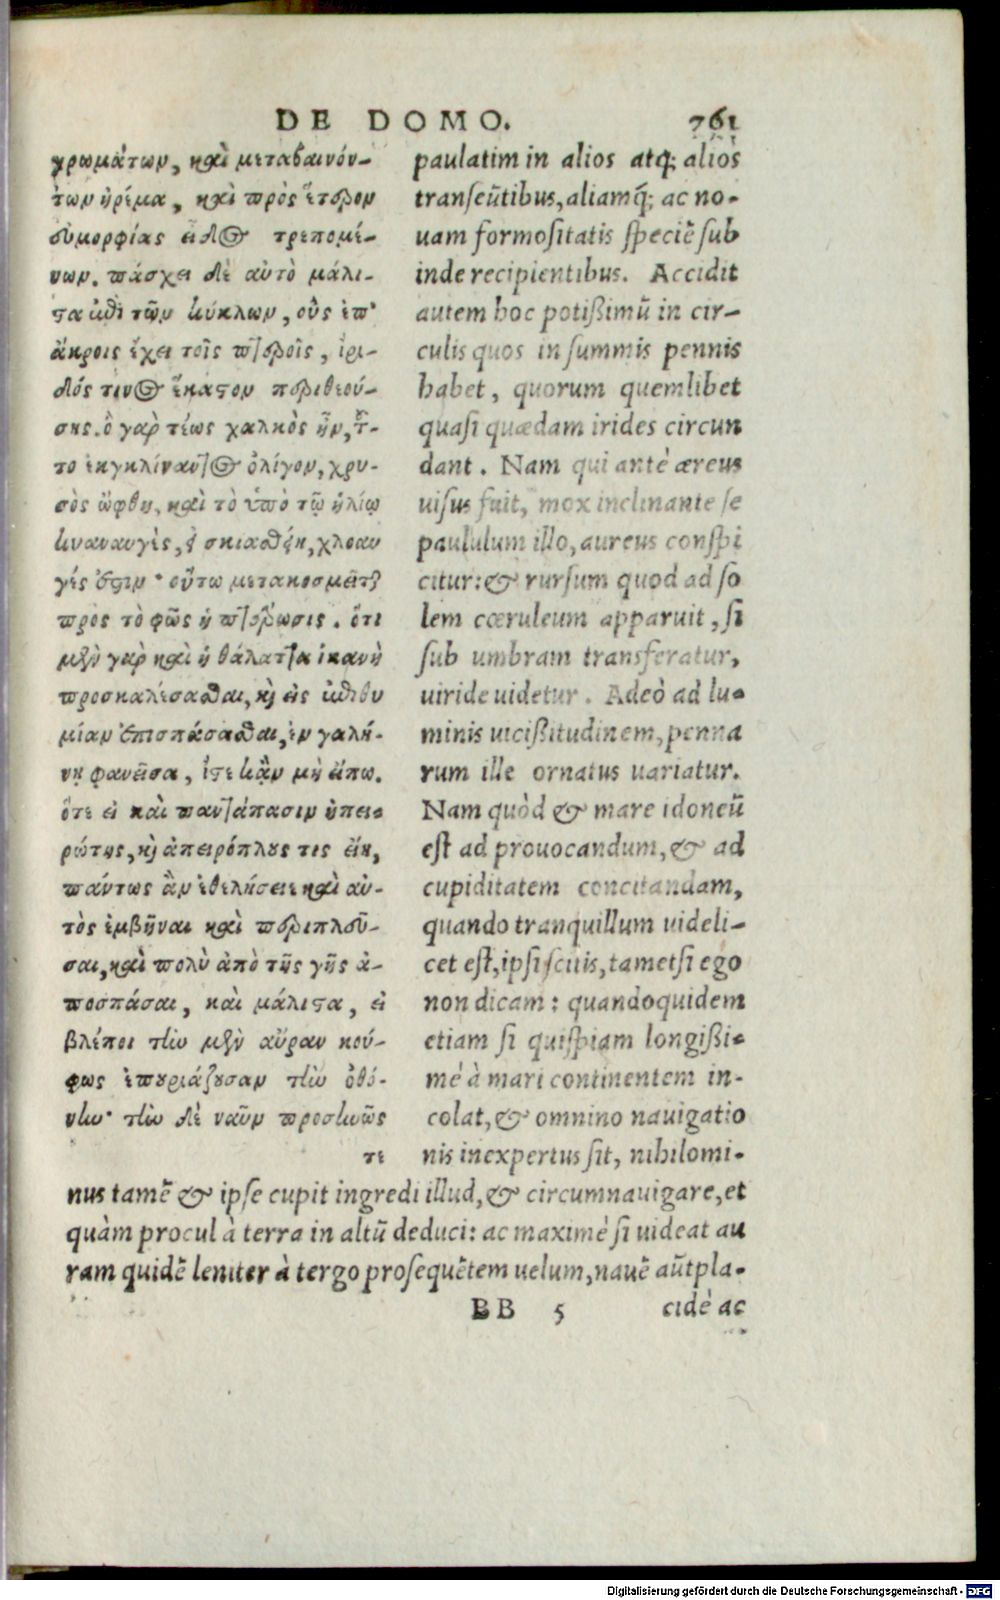 DE DOMO. 761
χρωμάτων, καὶ μεταβαινόν-
των ἠρέμα, καὶ πρὸς ἕτερον
εὐμορφίας εἶδος τρεπομέ-
νων. πάσχει δὲ αὐτὸ μάλι-
στα ἐπὶ τῶν κύκλων, οὓς ἐπ'
ἄκροις ἔχει τοῖς πτεροῖς, ἴρι-
δός τινος ἕκαστον περιθεού-
σης. ὃ γὰρ τέως χαλκὸς ἦν, τῦ-
το ἐγκλίναντος ὀλίγον, χρυ-
σὸς ὤφθη, καὶ τὸ ὑπὸ τῷ ἡλίῳ
κυαναυγὲς, εἰ σκιασθείη, χλοαυ
γές ἐστιν· οὕτω μετακοσμεῖται
πρὸς τὸ φῶς ἡ πτέρωσις. ὅτι
μὲν γὰρ καὶ ἡ θάλαττα ἱκανὴ
προσκαλέσασθαι, καὶ εἰς ἐπιθυ
μίαν ἐπισπάσασθαι, ἐν γαλή-
νῃ φανεῖσα, ἴστε κἂν μὴ εἴπω.
ὅτε εἰ καὶ παντάπασιν ἠπει-
ρώτης, καὶ ἀπειρόπλους τις εἴη,
πάντως ἂν ἐθελήσειε καὶ αὐ-
τὸς ἐμβῆναι καὶ περιπλεῦ-
σαι, καὶ πολὺ ἀπὸ τῆς γῆς ἀ-
ποσπάσαι, καὶ μάλιστα, εἰ
βλέποι τὴν μὲν αὔραν κού-
φως ἐπουριάζουσαν τὴν ὀθό-
νην· τὴν δὲ ναῦν προσηνῶς
τε
paulatim in alios atq; alios
transeūtibus, aliamq́; ac no-
uam formositatis speciē sub
inde recipientibus. Accidit
autem hoc potißimū in cir-
culis quos in summis pennis
habet, quorum quemlibet
quasi quædam irides circun
dant. Nam qui antè æreus
uisus fuit, mox inclinante se
paululum illo, aureus conspi
citur: & rursum quod ad so
lem cœruleum apparuit, si
sub umbram transferatur,
uiride uidetur. Adeò ad lu-
minis uicißitudinem, penna
rum ille ornatus uariatur.
Nam quòd & mare idoneū
est ad prouocandum, & ad
cupiditatem concitandam,
quando tranquillum uideli-
cet est, ipsi scitis, tametsi ego
non dicam: quandoquidem
etiam si quispiam longißi-
mè à mari continentem in-
colat, & omnino nauigatio
nis inexpertus sit, nihilomi-
nus tamē & ipse cupit ingredi illud, & circumnauigare, et
quàm procul à terra in altū deduci: ac maximè si uideat au
ram quidē leniter à tergo prosequētem uelum, nauē aūt pla-
BB 5 cidè ac
Digitalisierung gefördert durch die Deutsche Forschungsgemeinschaft - DFG